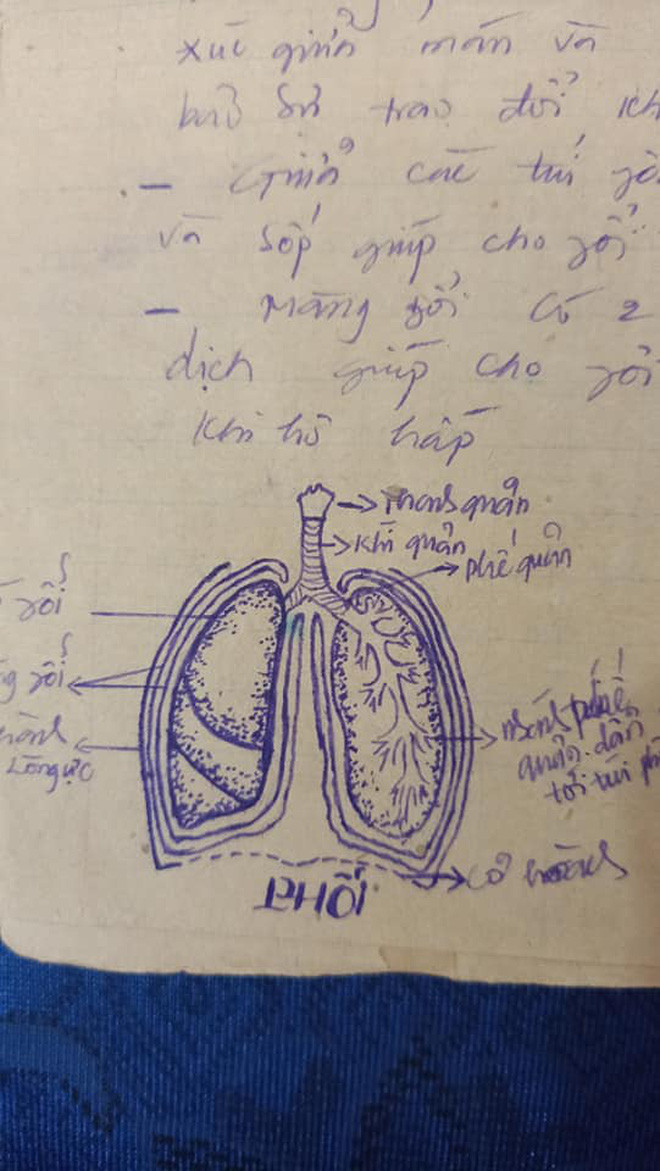 xúc giữa màn và
trao đổi kh
- Giữa các túi
và xốp giúp cho rổi
- Màng rổi có 2
dịch giúp cho rổi
khi hô hấp
Thanh quản
Khí quản
phế quản
rổi
rổi
Lồng ực
nhánh phế
quản dẫn
tới túi ph
cơ hoành
PHỔI